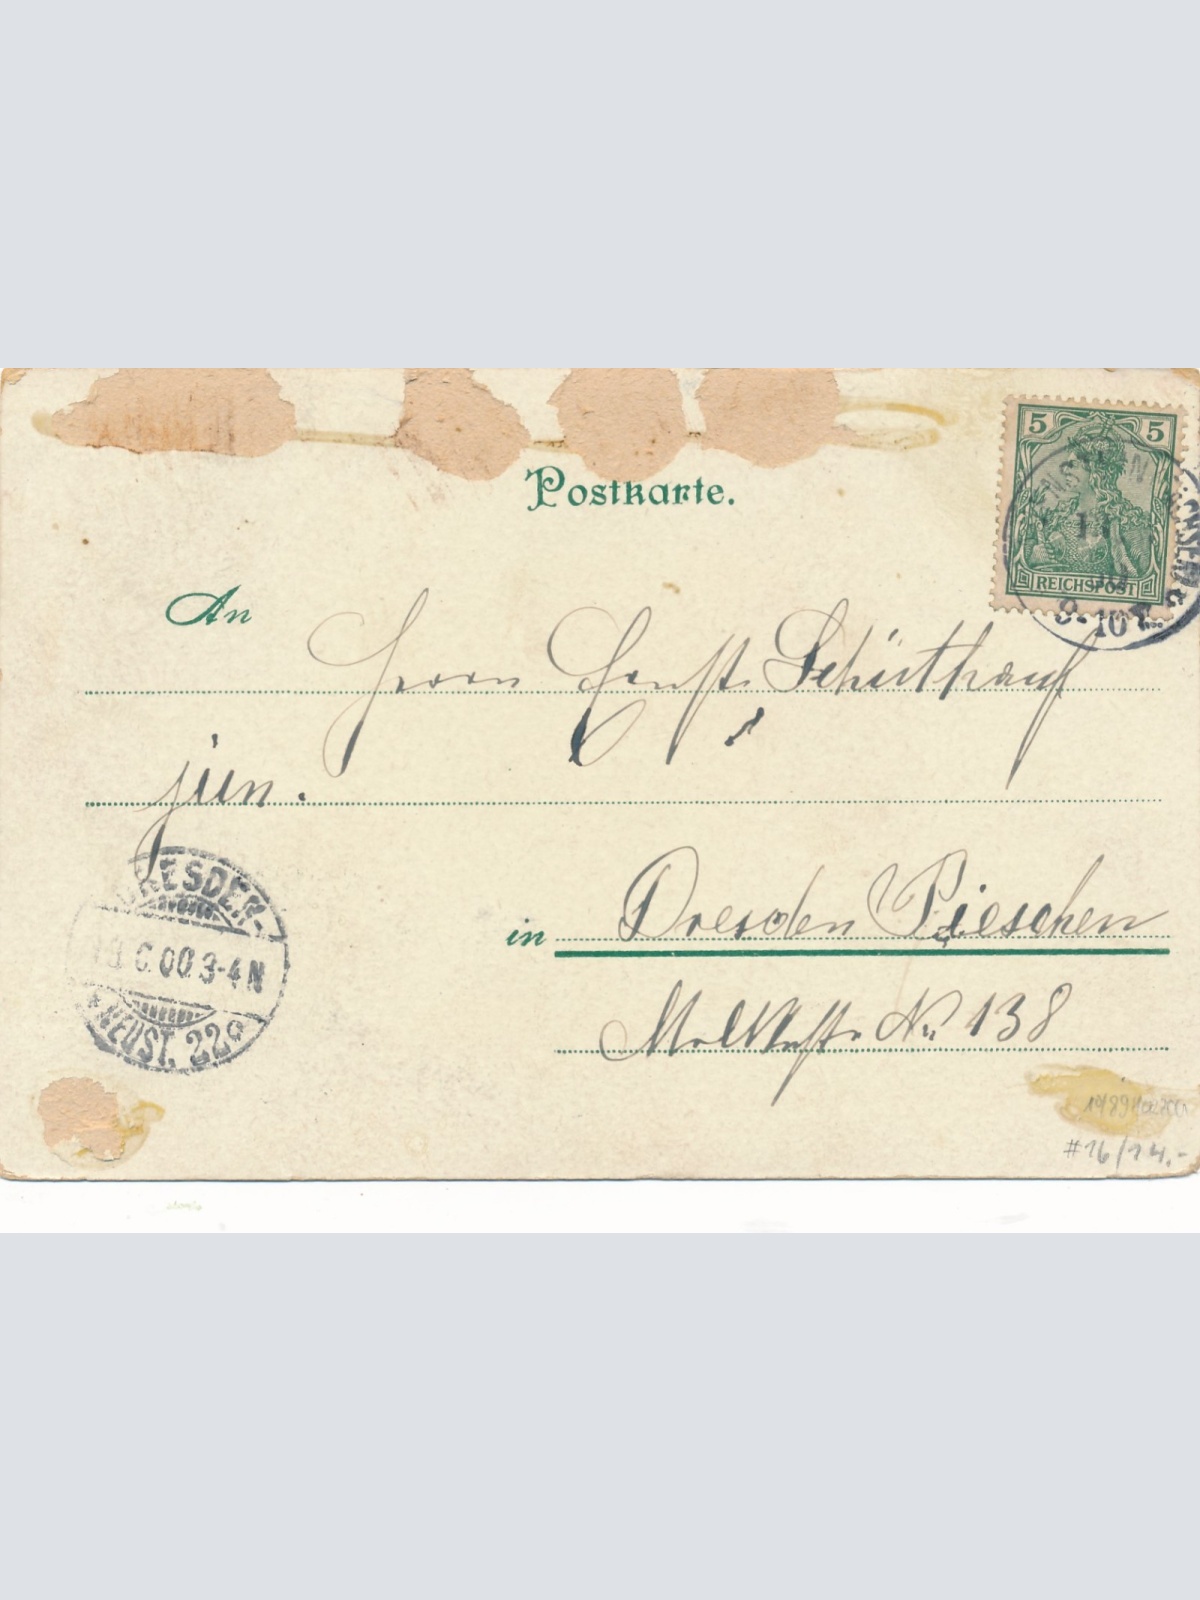 Postkarte.
5 5
REICHSPOST
An
Herrn Ernst Schürthauf
jun.
DRESDEN-
6.00.3-4N
NEUST. 22
in Dresden Pieschen
Moltkestr. No 138
#16/14.-